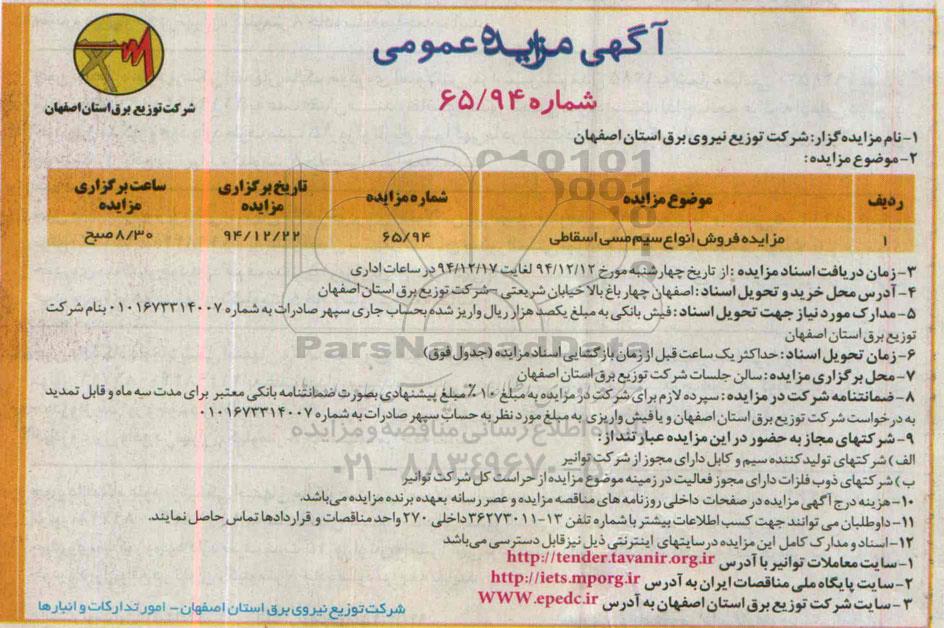 آگهی مزایده عمومی
شماره ۶۵/۹۴
شرکت توزیع برق استان اصفهان
۱- نام مزایده گزار: شرکت توزیع نیروی برق استان اصفهان
۲- موضوع مزایده:
ردیف موضوع مزایده شماره مزایده تاریخ برگزاری مزایده ساعت برگزاری مزایده
۱ مزایده فروش انواع سیم مسی اسقاطی ۶۵/۹۴ ۹۴/۱۲/۲۲ ۸/۳۰ صبح
۳- زمان دریافت اسناد مزایده: از تاریخ چهارشنبه مورخ ۹۴/۱۲/۱۲ لغایت ۹۴/۱۲/۱۷ در ساعات اداری
۴- آدرس محل خرید و تحویل اسناد: اصفهان چهار باغ بالا خیابان شریعتی - شرکت توزیع برق استان اصفهان
۵- مدارک مورد نیاز جهت تحویل اسناد: فیش بانکی به مبلغ یکصد هزار ریال واریز شده بحساب جاری سپهر صادرات به شماره ۰۱۰۱۶۷۳۳۱۴۰۰۷ بنام شرکت
توزیع برق استان اصفهان
۶- زمان تحویل اسناد: حداکثر یک ساعت قبل از زمان بازگشایی اسناد مزایده (جدول فوق)
۷- محل برگزاری مزایده: سالن جلسات شرکت توزیع برق استان اصفهان
۸- ضمانتنامه شرکت در مزایده: سپرده لازم برای شرکت در مزایده به مبلغ ۱۰٪ مبلغ پیشنهادی بصورت ضمانتنامه بانکی معتبر برای مدت سه ماه و قابل تمدید
به درخواست شرکت توزیع برق استان اصفهان و یا فیش واریزی به مبلغ مورد نظر به حساب سپهر صادرات به شماره ۰۱۰۱۶۷۳۳۱۴۰۰۷
۹- شرکتهای مجاز به حضور در این مزایده عبارتنداز:
الف) شرکتهای تولید کننده سیم و کابل دارای مجوز از شرکت توانیر
ب) شرکتهای ذوب فلزات دارای مجوز فعالیت در زمینه موضوع مزایده از حراست کل شرکت توانیر
۱۰- هزینه درج آگهی مزایده در صفحات داخلی روزنامه های مناقصه مزایده و عصر رسانه بعهده برنده مزایده می‌باشد.
۱۱- داوطلبان می توانند جهت کسب اطلاعات بیشتر با شماره تلفن ۱۳-۳۶۲۷۳۰۱۱ داخلی ۲۷۰ واحد مناقصات و قراردادها تماس حاصل نمایند.
۱۲- اسناد و مدارک کامل این مزایده در سایتهای اینترنتی ذیل نیز قابل دسترسی می‌باشد
۱- سایت معاملات توانیر با آدرس http://tender.tavanir.org.ir
۲- سایت پایگاه ملی مناقصات ایران به آدرس http://iets.mporg.ir
۳- سایت شرکت توزیع برق استان اصفهان به آدرس WWW.epedc.ir
شرکت توزیع نیروی برق استان اصفهان - امور تدارکات و انبارها
ParsNamadData
پایگاه اطلاع رسانی مناقصه و مزایده